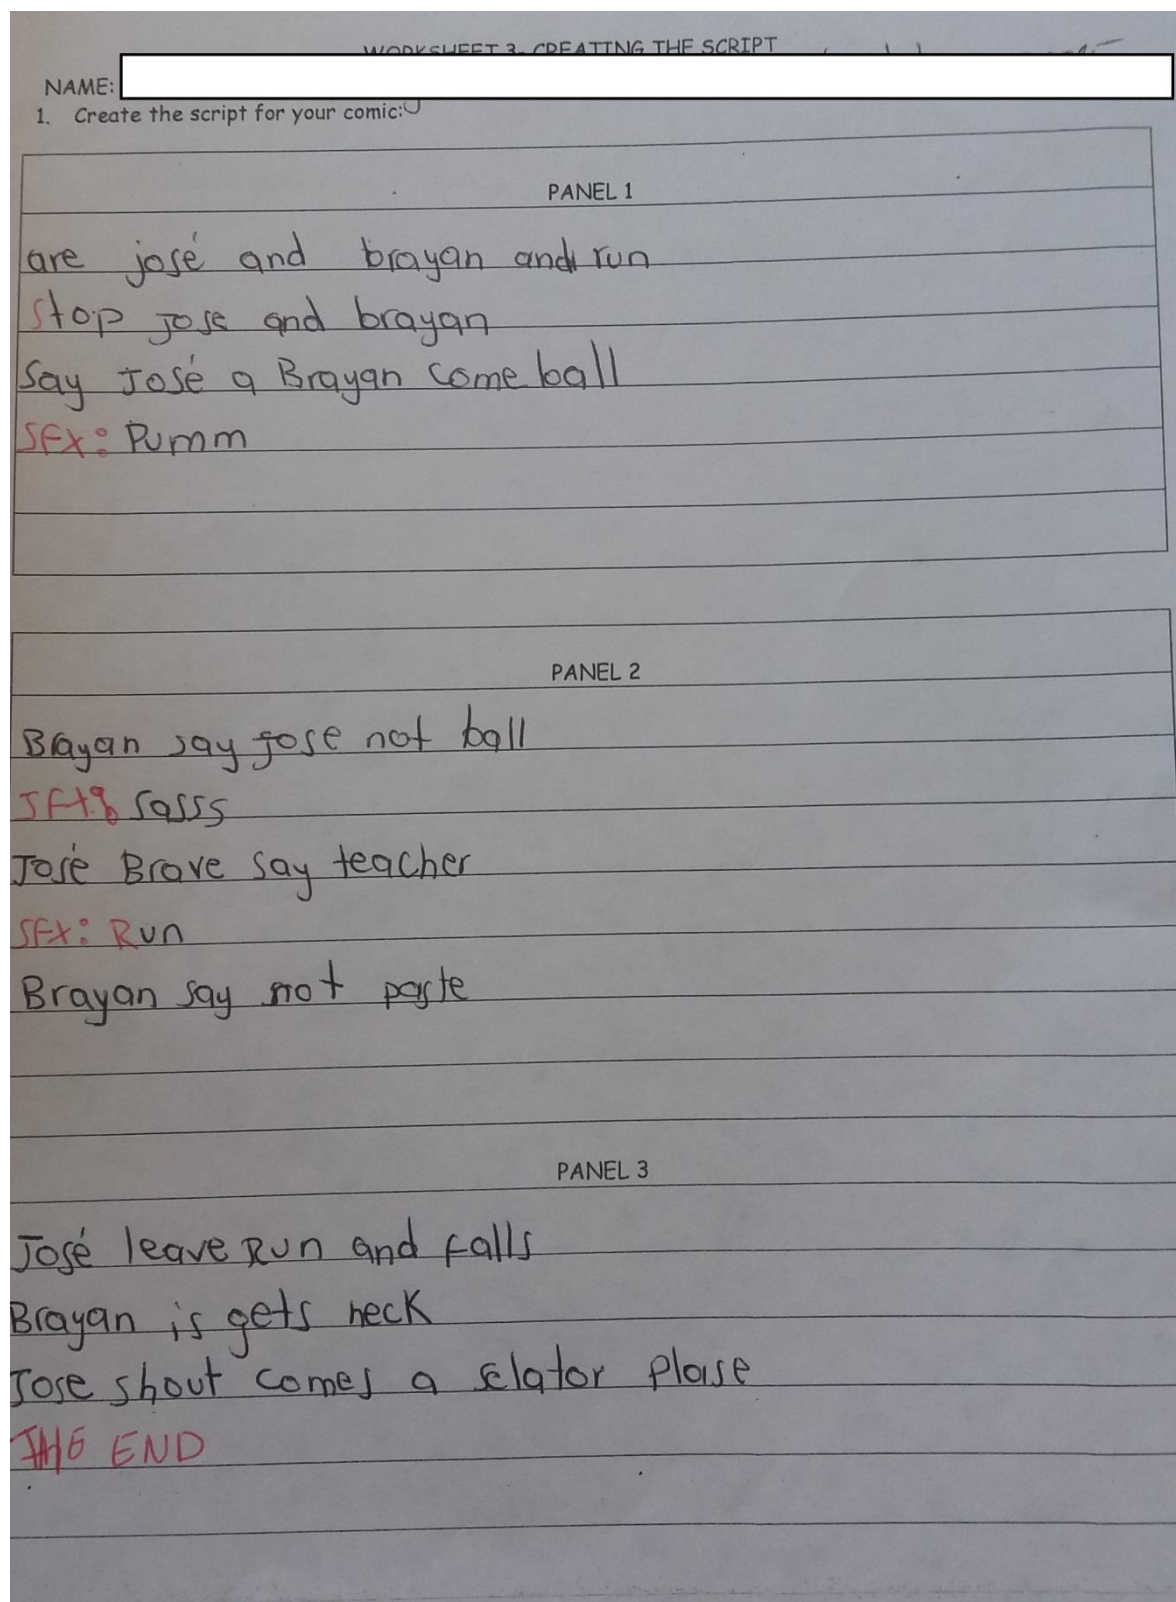 WORKSHEET 3. CREATING THE SCRIPT
NAME:
1. Create the script for your comic:
PANEL 1
are josé and brayan and run
Stop Jose and brayan
Say José a Brayan come ball
SFX: Pumm
PANEL 2
Brayan say jose not ball
SFX: sasss
José Brave say teacher
SFX: Run
Brayan say not paste
PANEL 3
José leave Run and falls
Brayan is gets neck
Jose shout comes a plaise
THE END